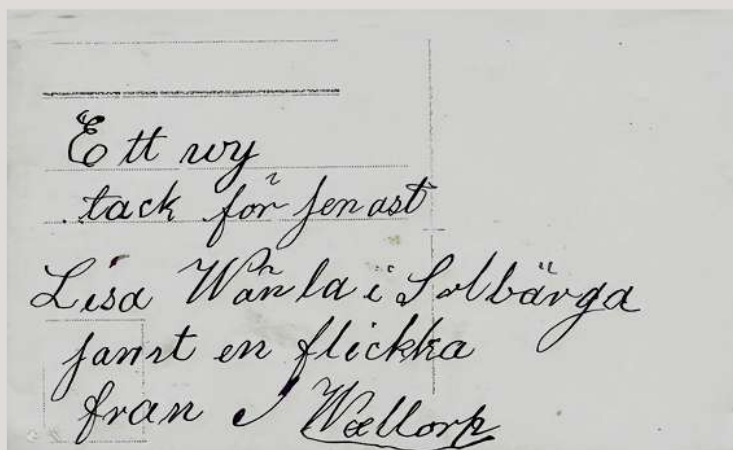 Ett wy
tack för senast
Lisa Wänla i Solbärga
samt en flickka
fran S